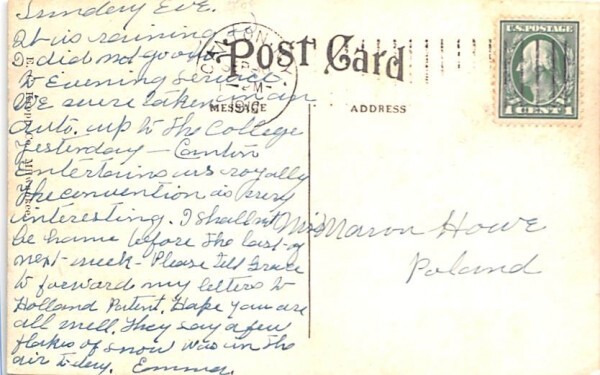 Sunday Eve.
It is raining
I did not go out
to Evening service.
We were taken in an
auto. up to the College
yesterday - Canton
entertains us royally
The convention is very
interesting. I shall not
be home before the last of
next week - Please tell Grace
to forward my letters to
Holland Patent. Hope you are
all well. They say a few
flakes of snow was in the
air today. Emma.
Post Card
MESSAGE
ADDRESS
CANTON
U.S. POSTAGE
1 CENT 1
Marion Howe
Poland